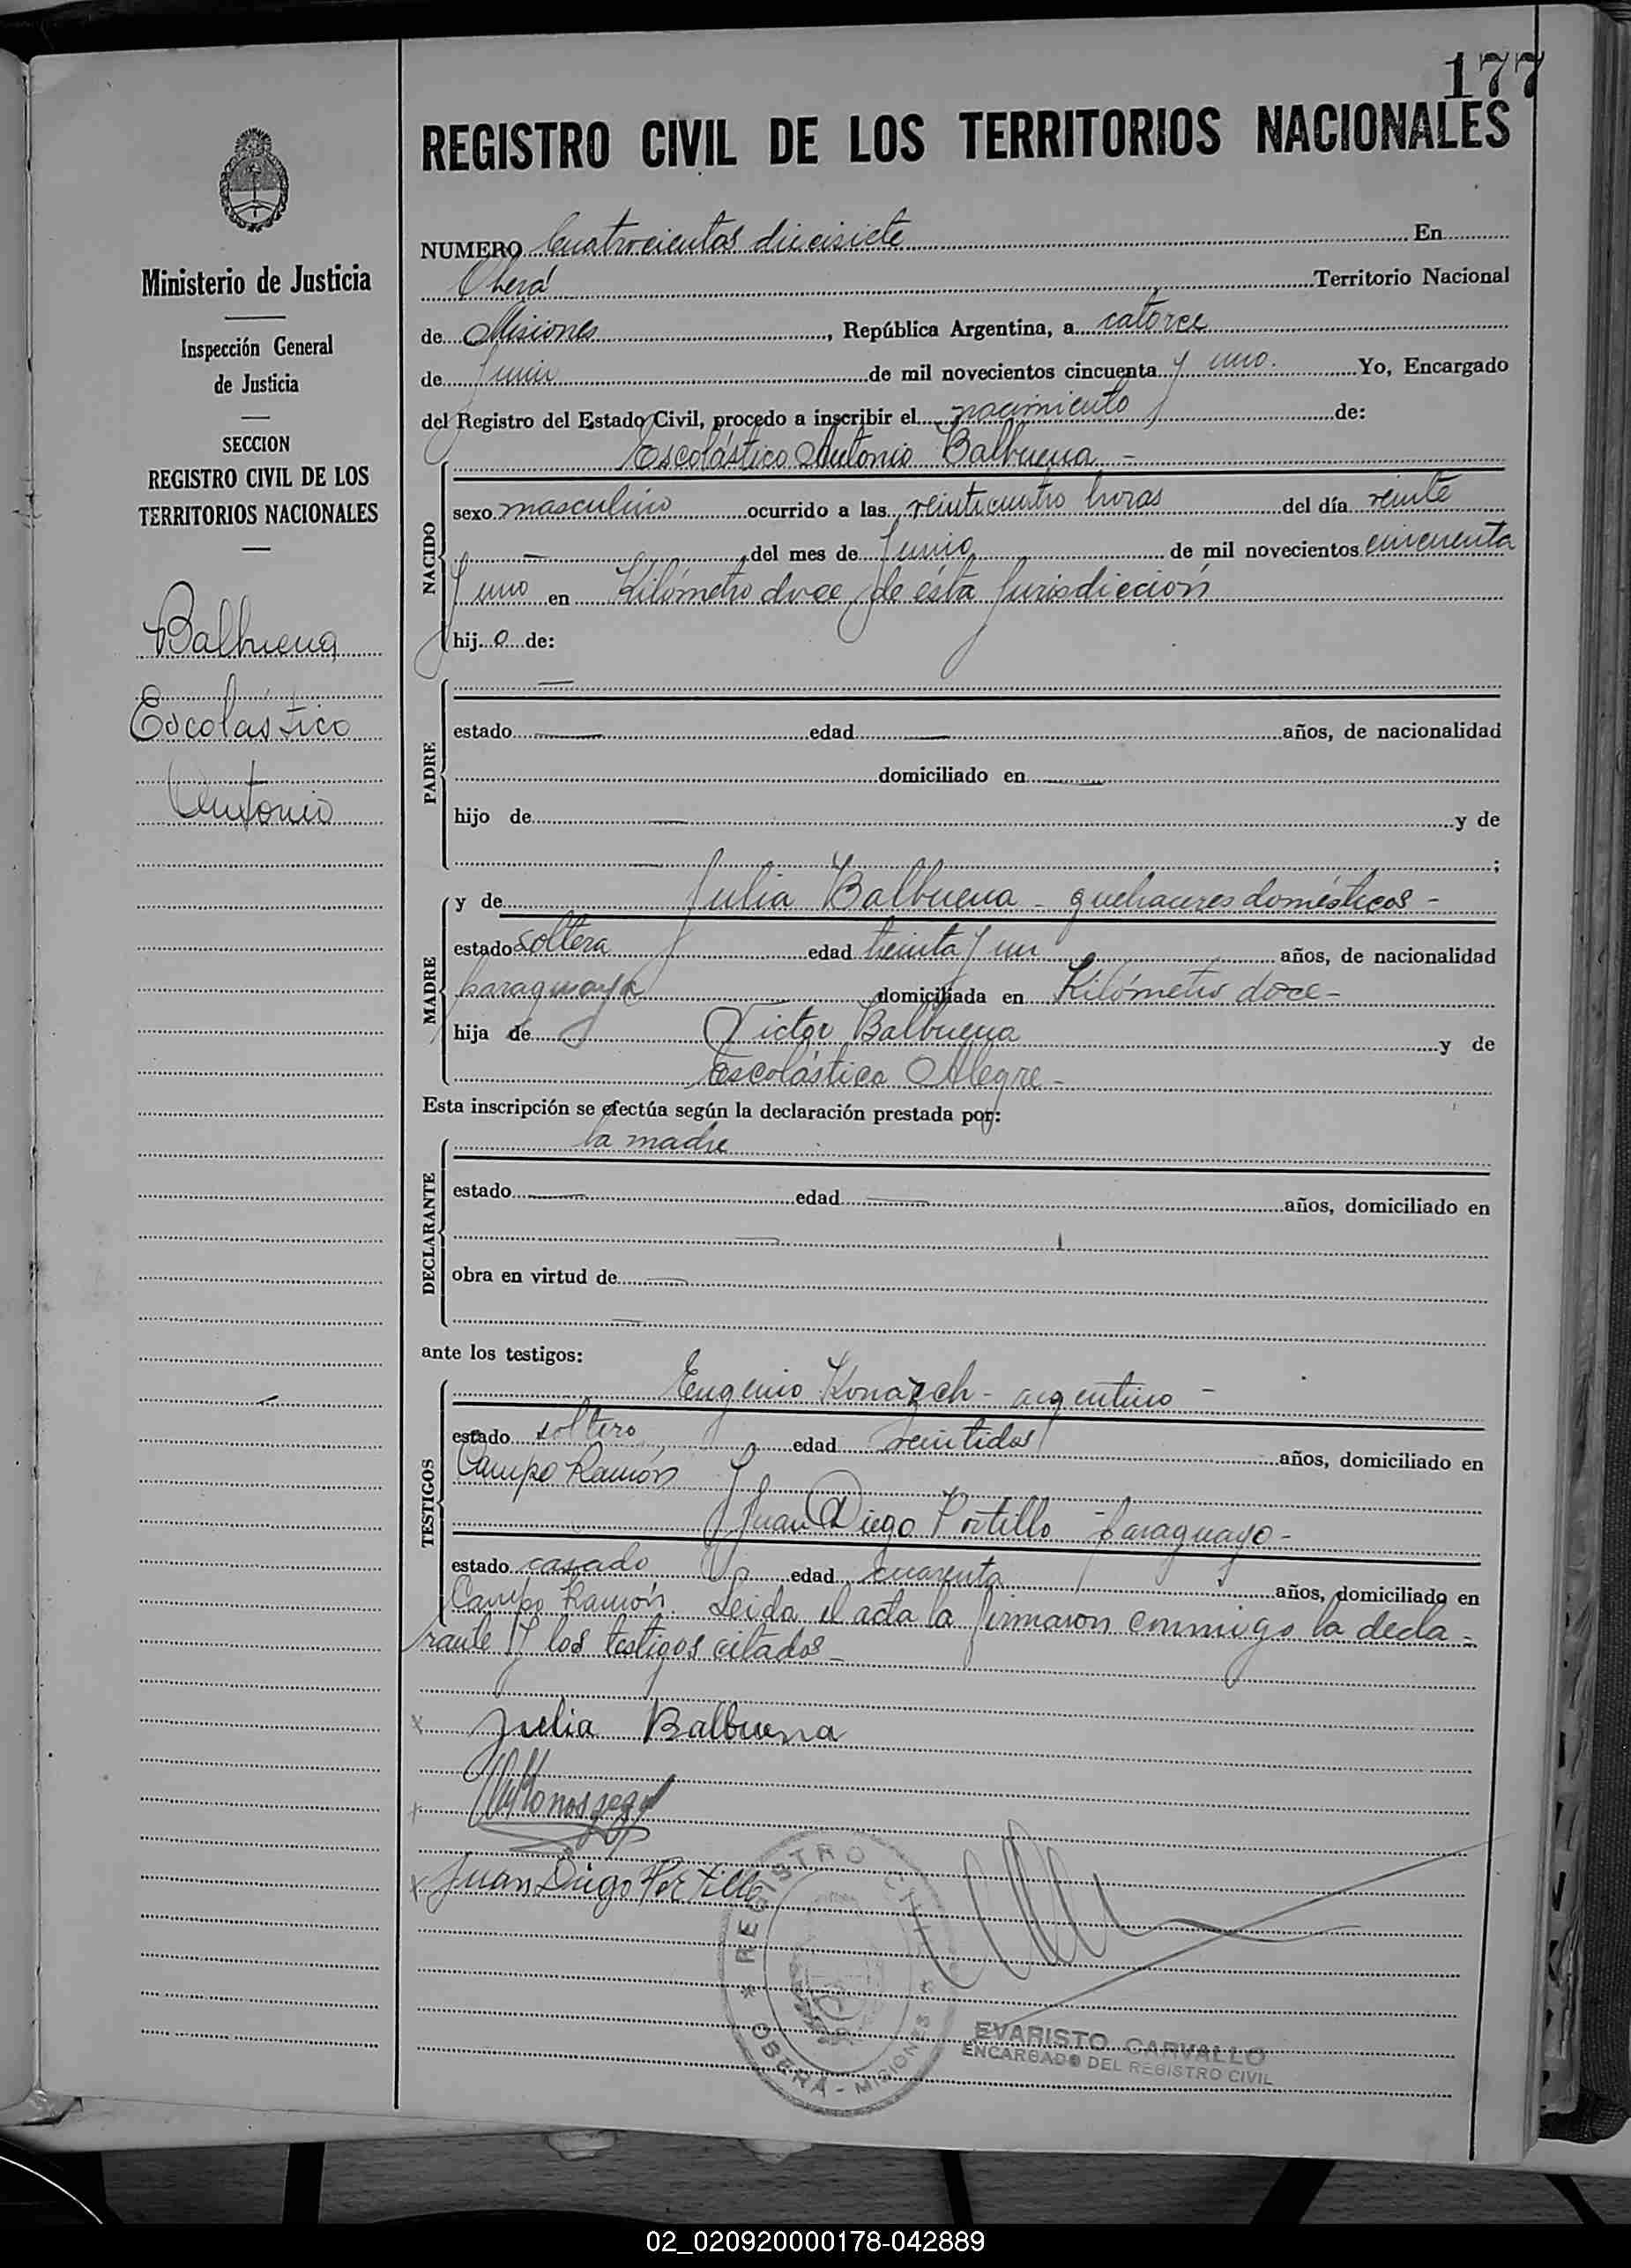 177
REGISTRO CIVIL DE LOS TERRITORIOS NACIONALES
Ministerio de Justicia
Inspección General
de Justicia
SECCION
REGISTRO CIVIL DE LOS
TERRITORIOS NACIONALES
Balbuena
Escolástico
Antonio
NUMERO Cuatrocientos diecisiete En
Oberá Territorio Nacional
de Misiones, República Argentina, a catorce
de Junio de mil novecientos cincuenta y uno. Yo, Encargado
del Registro del Estado Civil, procedo a inscribir el nacimiento de:
Escolástico Antonio Balbuena -
NACIDO
sexo masculino ocurrido a las veinticuatro horas del día veinte
— del mes de Junio de mil novecientos cincuenta
y uno en Kilómetro doce, de ésta jurisdicción
hijo de:
PADRE
—
estado — edad — años, de nacionalidad
domiciliado en —
hijo de — y de
— ;
MADRE
y de Julia Balbuena - quehaceres domésticos -
estado soltera edad treinta y un años, de nacionalidad
paraguaya domiciliada en Kilómetro doce -
hija de Victor Balbuena y de
Escolástica Alegre -
Esta inscripción se efectúa según la declaración prestada por:
DECLARANTE
la madre
estado — edad — años, domiciliado en
—
obra en virtud de —
—
ante los testigos:
TESTIGOS
Eugenio - argentino -
estado soltero edad veintidos años, domiciliado en
Campo Ramón y
Juan Diego Portillo - paraguayo -
estado casado edad cuarenta años, domiciliado en
Campo Ramón. Leida el acta la firmaron conmigo la decla-
rante y los testigos citados -
x Julia Balbuena
x
x Juan Diego Portillo
REGISTRO CIVIL
* OBERÁ - MISIONES *
EVARISTO CARVALLO
ENCARGADO DEL REGISTRO CIVIL
02_020920000178-042889